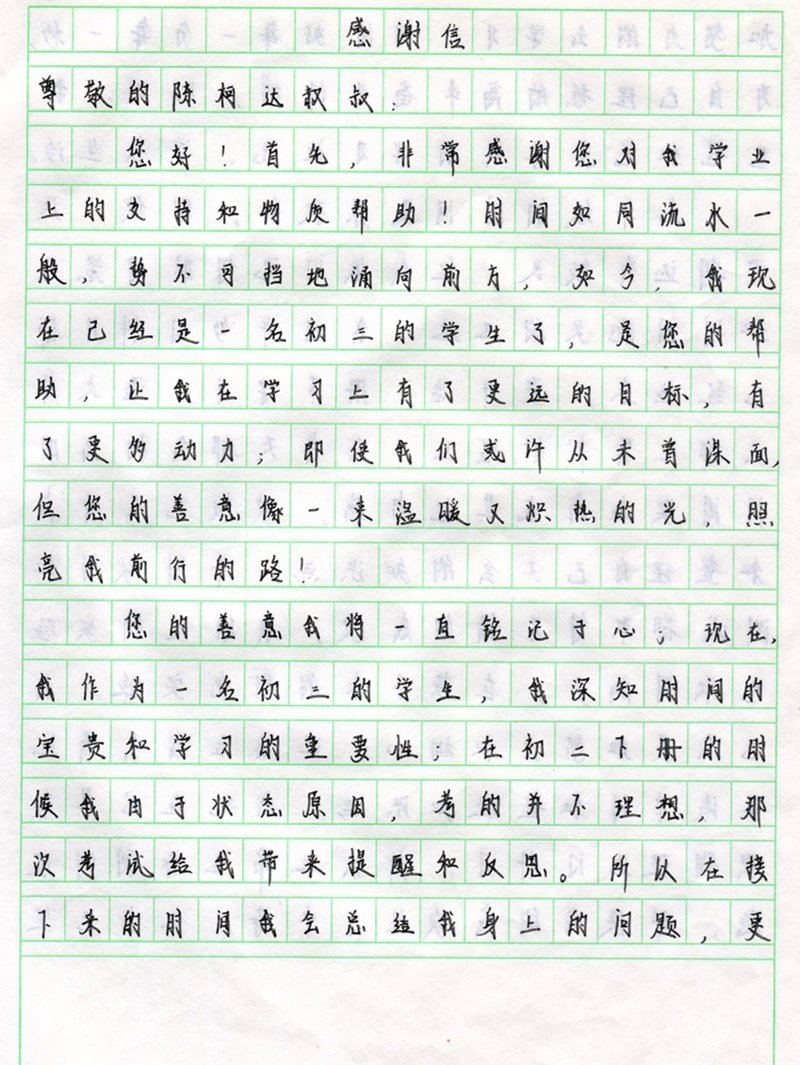 感谢信
尊敬的陈柯达叔叔：
您好！首先，非常感谢您对我学业
上的支持和物质帮助！时间如同流水一
般，势不可挡地涌向前方，如今，我现
在已经是一名初三的学生了，是您的帮
助，让我在学习上有了更远的目标，有
了更多动力；即使我们或许从未曾谋面，
但您的善意像一束温暖又炽热的光，照
亮我前行的路！
您的善意我将一直铭记于心；现在，
我作为一名初三的学生，我深知时间的
宝贵和学习的重要性；在初二下册的时
候我由于状态原因，考的并不理想，那
次考试给我带来提醒和反思。所以在接
下来的时间我会总结我身上的问题，更